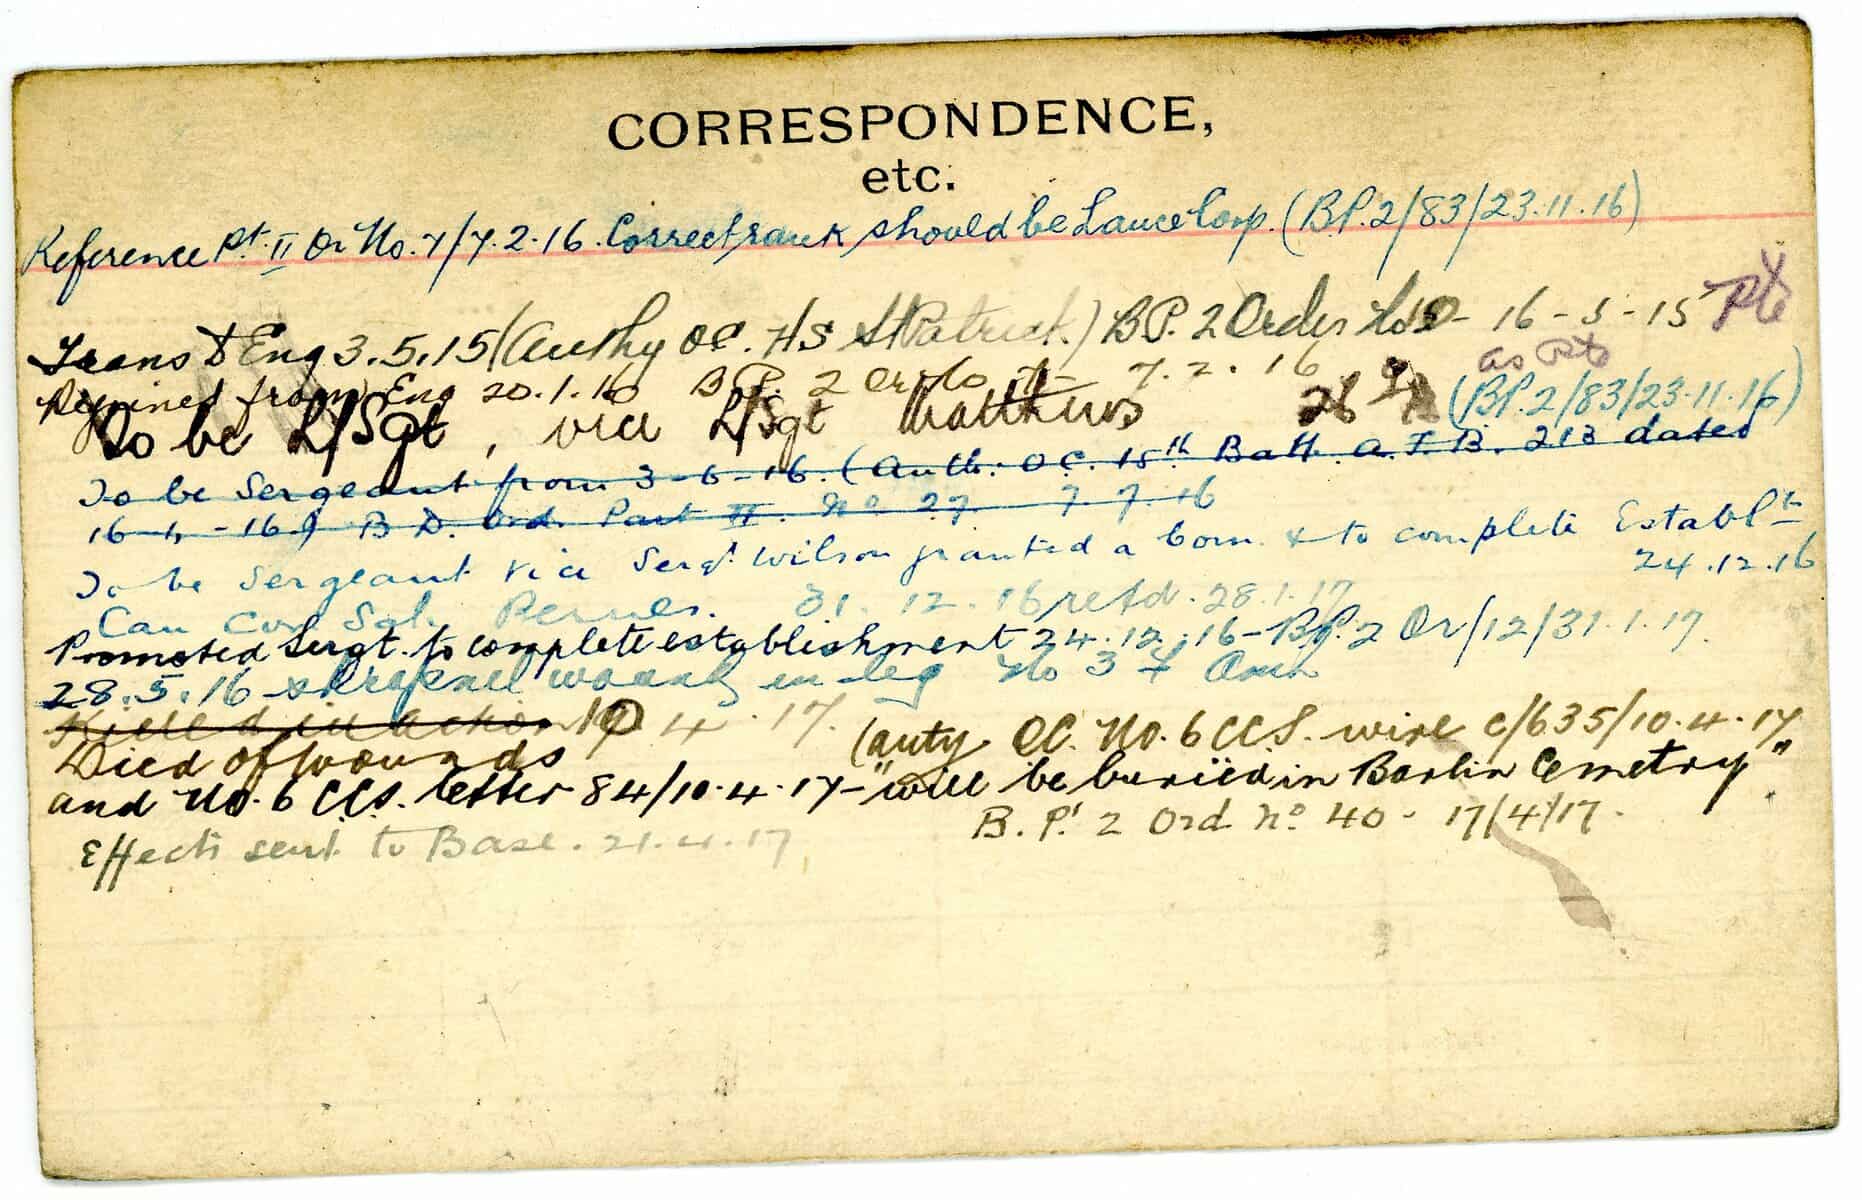 CORRESPONDENCE,
etc.
Reference Pt. II Or No. 7/7.2.16. Correct rank should be Lance Corp. (B.P.2/83/23.11.16)
Trans to Eng 3.5.15 (Authy OC. HS St Patrick.) BP. 2 Order No - 16-5-15 Pte
as Pte
Rejoined from Eng 20.1.16 B.P. 2 Or No 7 - 7.2.16
To be L/Sgt, vice L/Sgt Matthews 26 (BP.2/83/23.11.16)
To be Sergeant from 3-6-16. (Auth. OC. 15th Batt. A.F.B. 213 dated
16-16) B.D. Ord. Part II. No 27. 7.7.16
To be Sergeant vice Sergt Wilson granted a Com. & to complete Establt
24.12.16
Can Cor Sgl. Pernes. 31.12.16 retd. 28.1.17
Promoted Sergt. to complete establishment 24.12.16 - B.P. 2 Or/12/31.1.17.
28.5.16 shrapnel wounds in leg No 3 Amb
Killed in action 10 4.17.
Died of wounds (auty OC. No. 6 CCS. wire C/635/10.4.17
and No. 6 CCS. letter 84/10.4.17 - "will be buried in Barlin Cemetry"
B.P. 2 Ord No 40 - 17/4/17.
Effects sent to Base. 21.4.17